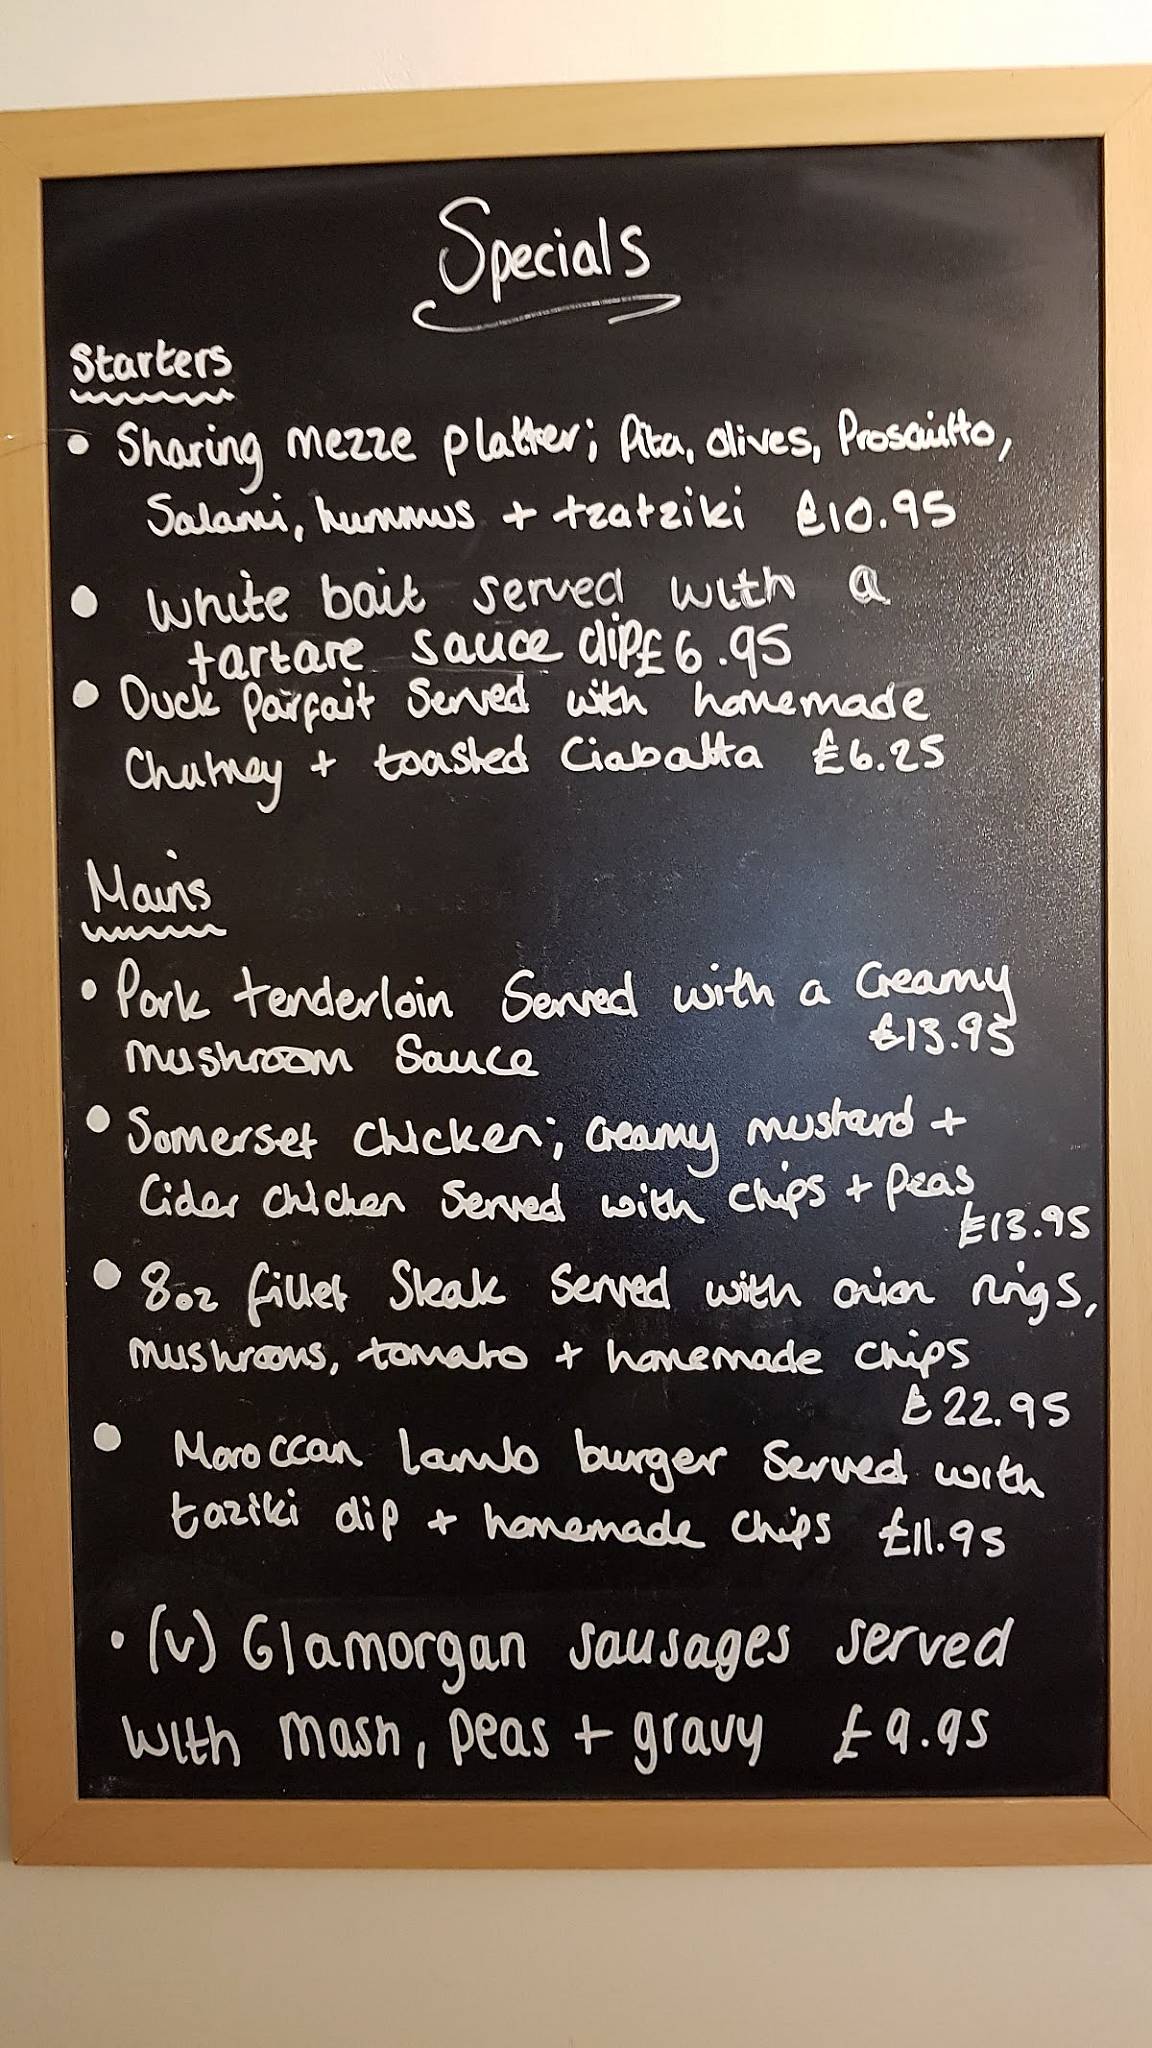 Specials
Starters
• Sharing mezze platter; Pita, olives, Prosciutto,
Salami, hummus + tzatziki £10.95
• White bait served with a
tartare sauce dip £6.95
• Duck parfait Served with homemade
Chutney + toasted Ciabatta £6.25
Mains
• Pork tenderloin Served with a Creamy
mushroom Sauce £13.95
• Somerset chicken; Creamy mustard +
Cider chicken Served with chips + Peas
£13.95
• 8oz fillet Steak Served with onion rings,
mushrooms, tomato + homemade chips
£22.95
• Moroccan lamb burger Served with
taziki dip + homemade chips £11.95
• (v) Glamorgan sausages served
with mash, peas + gravy £9.95